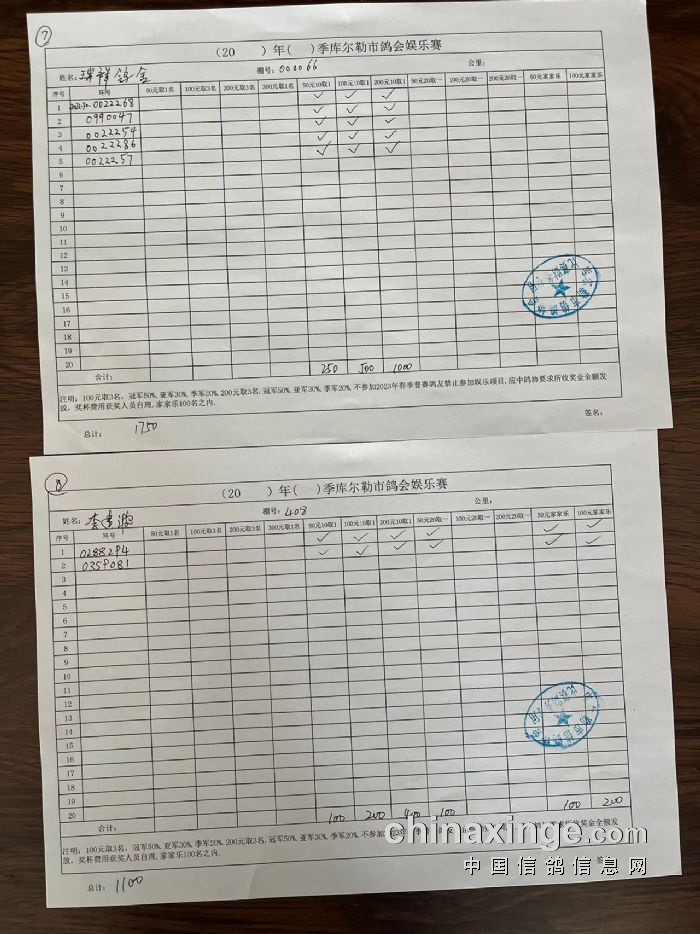 7
(20 )年( )季库尔勒市鸽会娱乐赛
姓名: 瑞祥鸽舍 棚号: 000066 公里:
序号 环号 50元取1名 100元取3名 200元取3名 300元取1名 50元10取1 100元10取1 200元10取1 50元20取一 100元20取一 200元20取一 50元家家乐 100元家家乐
1 0022268 ✓ ✓ ✓
2 0990047 ✓ ✓ ✓
3 0022254 ✓ ✓ ✓
4 0022286 ✓ ✓ ✓
5 0022257 ✓ ✓ ✓
6
7
8
9
10
11
12
13
14
15
16
17
18
19
20
合计: 250 500 1000
注明: 100元取3名, 冠军50%, 亚军30%, 季军20%, 200元取3名, 冠军50%, 亚军30%, 季军20%, 不参加2023年春季普赛鸽友禁止参加娱乐项目, 应中鸽协要求所收奖金全额发
放, 奖杯费用获奖人员自理, 家家乐100名之内.
签名:
总计: 1750
8
(20 )年( )季库尔勒市鸽会娱乐赛
姓名: 李 棚号: 403 公里:
序号 环号 50元取1名 100元取3名 200元取3名 300元取1名 50元10取1 100元10取1 200元10取1 50元20取一 100元20取一 200元20取一 50元家家乐 100元家家乐
1 0288294 ✓ ✓ ✓ ✓ ✓ ✓
2 0359081 ✓ ✓ ✓ ✓ ✓ ✓
3
4
5
6
7
8
9
10
11
12
13
14
15
16
17
18
19
20
合计: 100 200 400 100 100 200
注明: 100元取3名, 冠军50%, 亚军30%, 季军20%, 200元取3名, 冠军50%, 亚军30%, 季军20%, 不参加2023年 所收奖金全额发
放, 奖杯费用获奖人员自理, 家家乐100名之内.
签
总计: 1100
chinaxinge.com
中国信鸽信息网